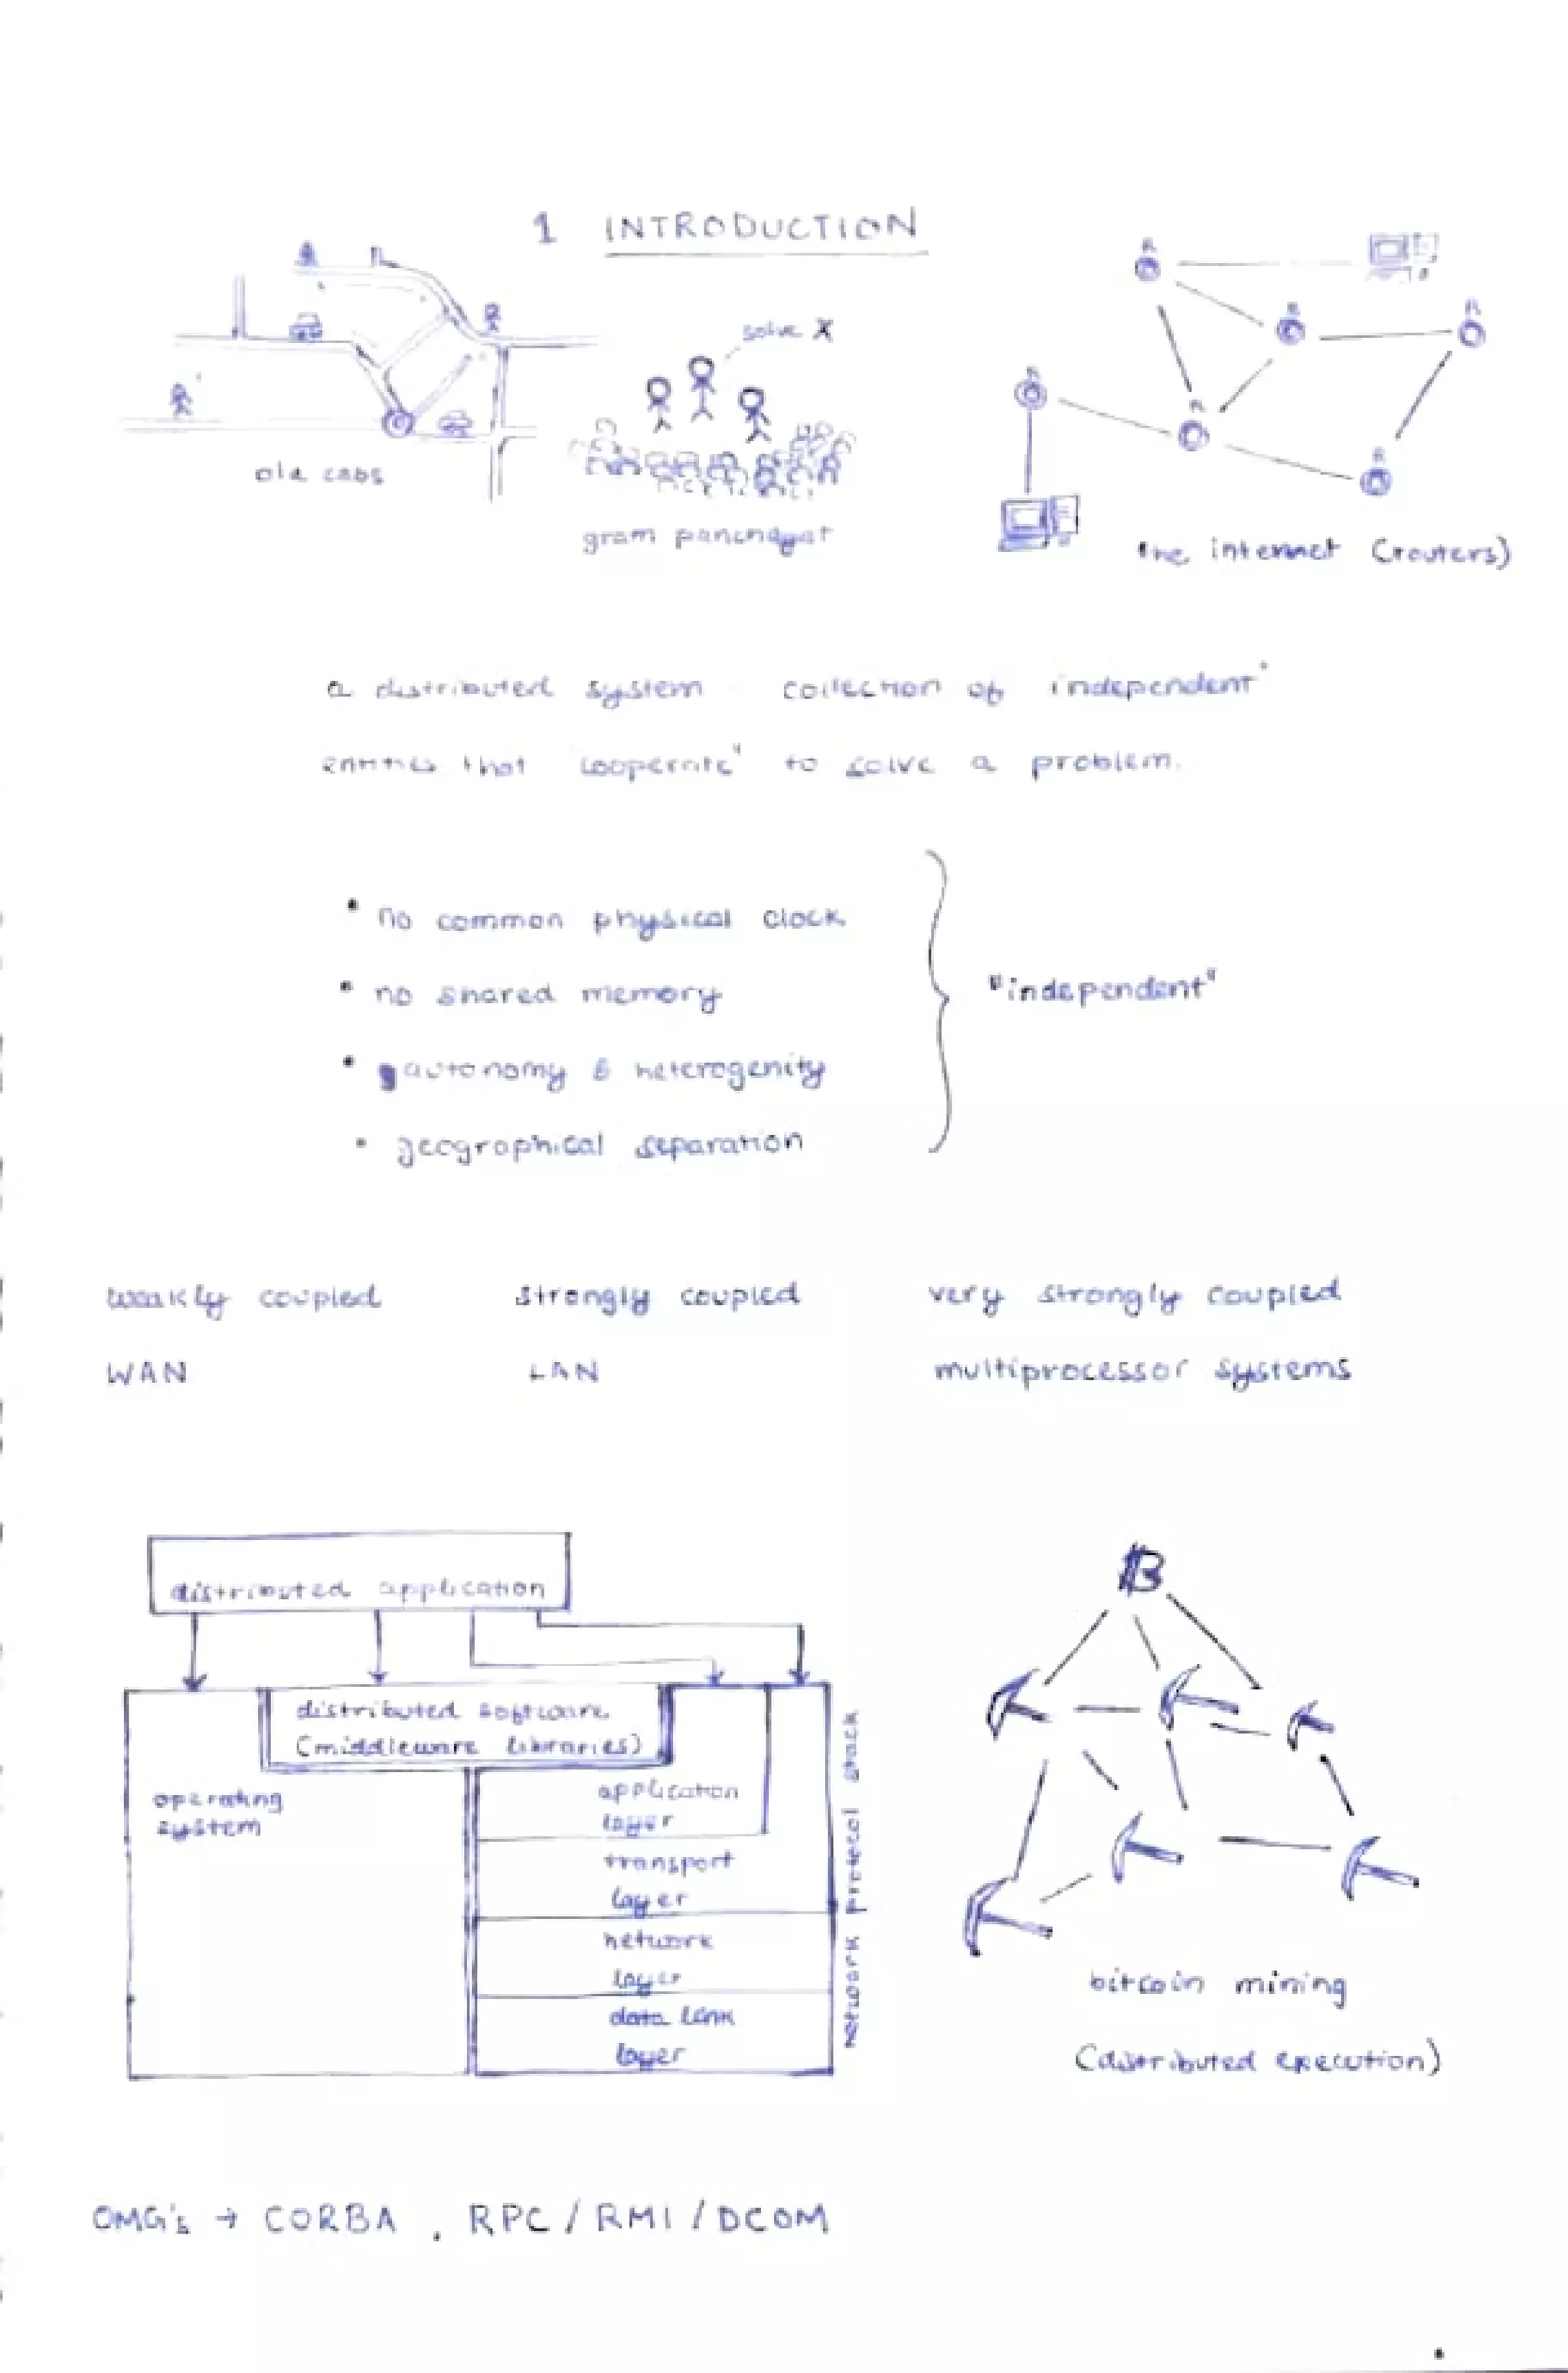 1 INTRODUCTION
ola cabs
solve X
gram panchayat
R
R
R
R
R
R
the internet (routers)
a distributed system - collection of "independent"
entities that "cooperate" to solve a problem.
• no common physical clock
• no shared memory
• autonomy & heterogenity
• geographical separation
"independent"
weakly coupled strongly coupled very strongly coupled
WAN LAN multiprocessor systems
distributed application
distributed software
(middleware libraries)
operating
system
application
layer
transport
layer
network
layer
data link
layer
network protocol stack
₿
bitcoin mining
(distributed execution)
OMG's → CORBA , RPC / RMI / DCOM